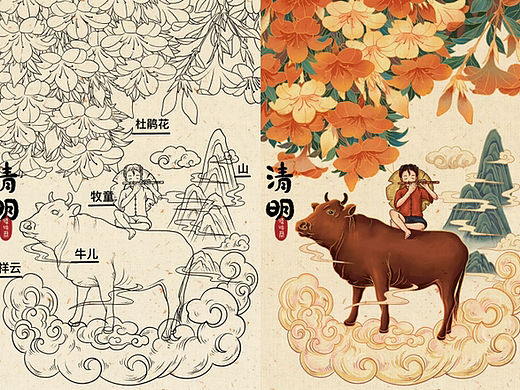 杜鹃花
山
清明
牧童
牛儿
祥云
清明